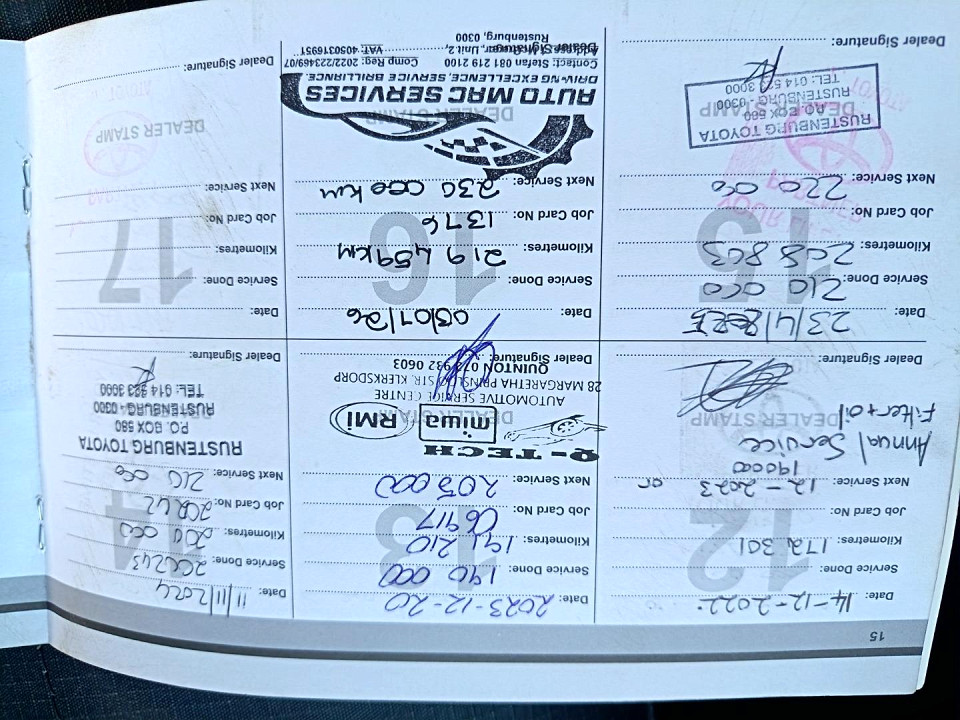 15
12
Date: 14-12-2022
Service Done:
Kilometres: 172 301
Job Card No:
Next Service: 12-2023 or
190000
Annual Service
DEALER STAMP
Filter + oil
Dealer Signature:
13
Date: 2023-12-20
Service Done: 190 000
Kilometres: 191 210
Job Card No: 06917
Next Service: 205 000
Q-TECH
miwa
RMi
DEALER STAMP
AUTOMOTIVE SERVICE CENTRE
28 MARGARETHA PRINSLOO STR. KLERKSDORP
QUINTON 073 932 0603
Dealer Signature:
14
Date: 11/11/2024
Service Done: 200243
Kilometres: 200 000
Job Card No: 20242
Next Service: 210 000
RUSTENBURG TOYOTA
P.O. BOX 560
RUSTENBURG - 0300
TEL: 014 523 3000
Dealer Signature:
15
Date: 23/4/2025
Service Done: 210 000
Kilometres: 208 803
Job Card No:
Next Service: 220 000
DEALER STAMP
RUSTENBURG TOYOTA
P.O. BOX 560
RUSTENBURG - 0300
TEL: 014 523 3000
Dealer Signature:
16
Date: 03/01/26
Service Done:
Kilometres: 219 459km
Job Card No: 1376
Next Service: 230 000 km
DEALER STAMP
AUTO MAC SERVICES
DRIVING EXCELLENCE, SERVICE BRILLIANCE.
Contact: Stefan 081 219 2100
Comp Reg: 2022/223469/07
VAT: 4050316951
Dealer Signature:
Rustenburg, 0300
17
Date:
Service Done:
Kilometres:
Job Card No:
Next Service:
DEALER STAMP
Dealer Signature: